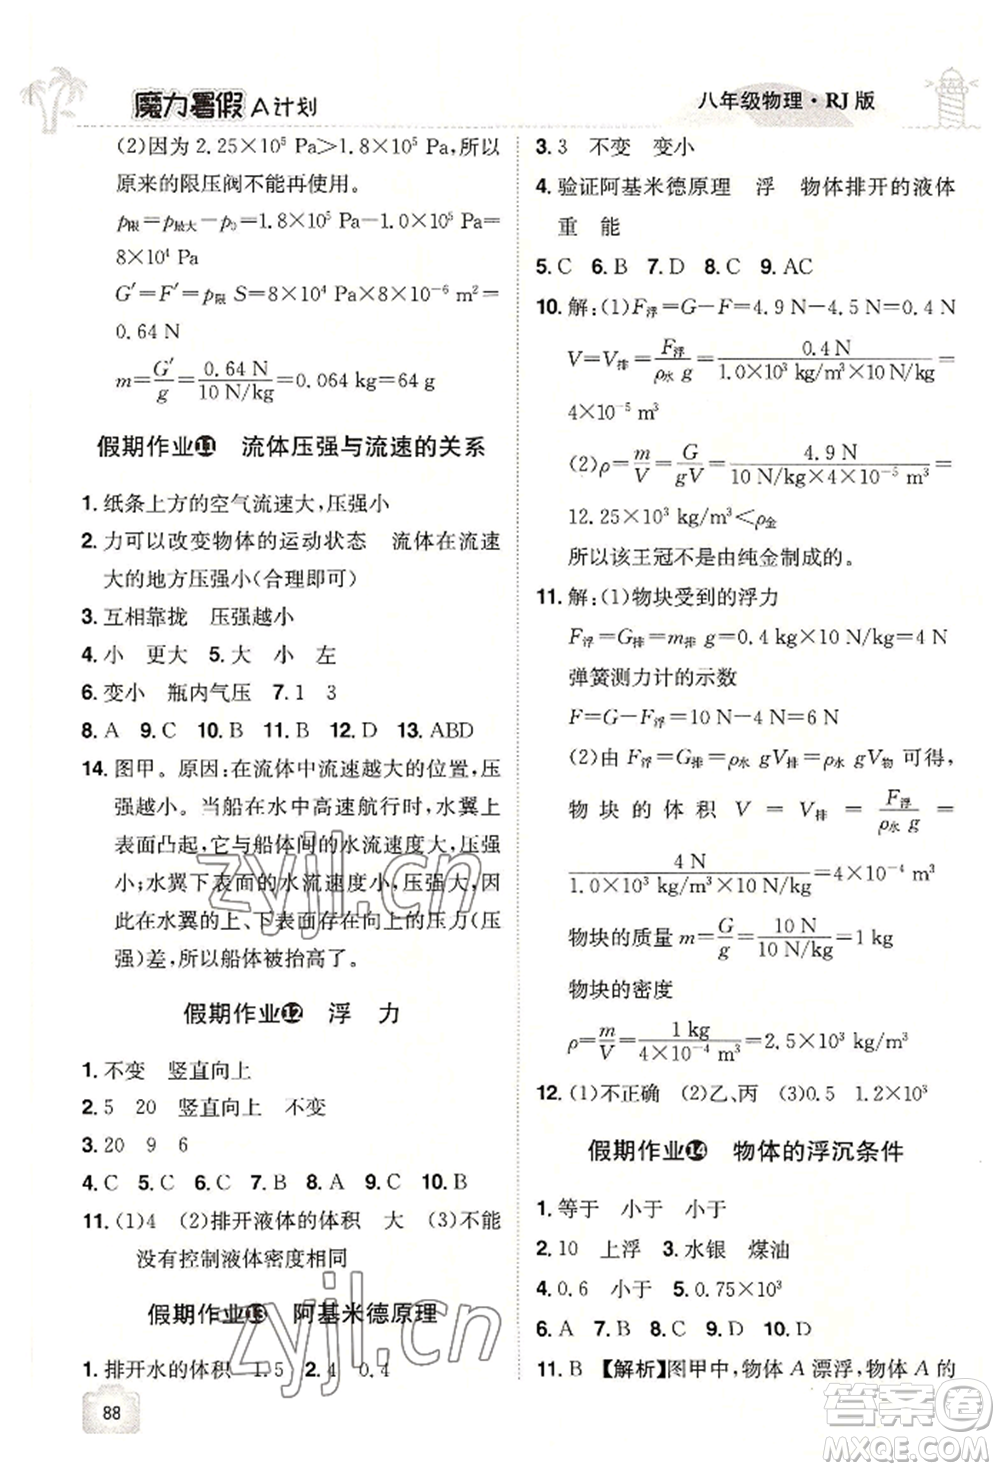 魔力暑假 A计划
八年级物理·RJ版
(2)因为 2.25×10⁵ Pa>1.8×10⁵ Pa,所以
原来的限压阀不能再使用。
p限=p最大-p₀=1.8×10⁵ Pa-1.0×10⁵ Pa=
8×10⁴ Pa
G′=F′=p限 S=8×10⁴ Pa×8×10⁻⁶ m²=
0.64 N
m=G′/g=0.64 N/10 N/kg=0.064 kg=64 g
假期作业⑪ 流体压强与流速的关系
1.纸条上方的空气流速大,压强小
2.力可以改变物体的运动状态 流体在流速
大的地方压强小(合理即可)
3.互相靠拢 压强越小
4.小 更大 5.大 小 左
6.变小 瓶内气压 7.1 3
8.A 9.C 10.B 11.B 12.D 13.ABD
14.图甲。原因:在流体中流速越大的位置,压
强越小。当船在水中高速航行时,水翼上
表面凸起,它与船体间的水流速度大,压强
小;水翼下表面的水流速度小,压强大,因此
在水翼的上、下表面存在向上的压力(压
强)差,所以船体被抬高了。
假期作业⑫ 浮 力
1.不变 竖直向上
2.5 20 竖直向上 不变
3.20 9 6
4.C 5.C 6.C 7.B 8.C 9.C 10.B
11.(1)4 (2)排开液体的体积 大 (3)不能
没有控制液体密度相同
假期作业⑬ 阿基米德原理
1.排开水的体积 1.5 2.4 0.4
88
3.3 不变 变小
4.验证阿基米德原理 浮 物体排开的液体
重 能
5.C 6.B 7.D 8.C 9.AC
10.解:(1)F浮=G-F=4.9 N-4.5 N=0.4 N
V=V排=F浮/ρ水 g=0.4 N/1.0×10³ kg/m³×10 N/kg=
4×10⁻⁵ m³
(2)ρ=m/V=G/gV=4.9 N/10 N/kg×4×10⁻⁵ m³=
12.25×10³ kg/m³<ρ金
所以该王冠不是由纯金制成的。
11.解:(1)物块受到的浮力
F浮=G排=m排 g=0.4 kg×10 N/kg=4 N
弹簧测力计的示数
F=G-F浮=10 N-4 N=6 N
(2)由 F浮=G排=ρ水 gV排=ρ水 gV物 可得,
物块的体积 V=V排=F浮/ρ水 g=
4 N/1.0×10³ kg/m³×10 N/kg=4×10⁻⁴ m³
物块的质量 m=G/g=10 N/10 N/kg=1 kg
物块的密度
ρ=m/V=1 kg/4×10⁻⁴ m³=2.5×10³ kg/m³
12.(1)不正确 (2)乙、丙 (3)0.5 1.2×10³
假期作业⑭ 物体的浮沉条件
1.等于 小于 小于
2.10 上浮 3.水银 煤油
4.0.6 小于 5.0.75×10³
6.A 7.D 8.B 9.D 10.D
11.B 【解析】图甲中,物体 A 漂浮,物体 A 的
zyjl.cn
zyjl.cn
答案圈
MXQE.COM